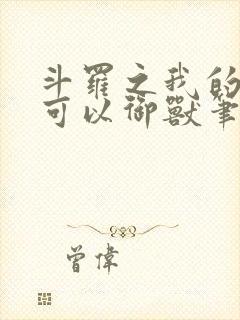 斗羅之我的
可以御獸筆
曾偉